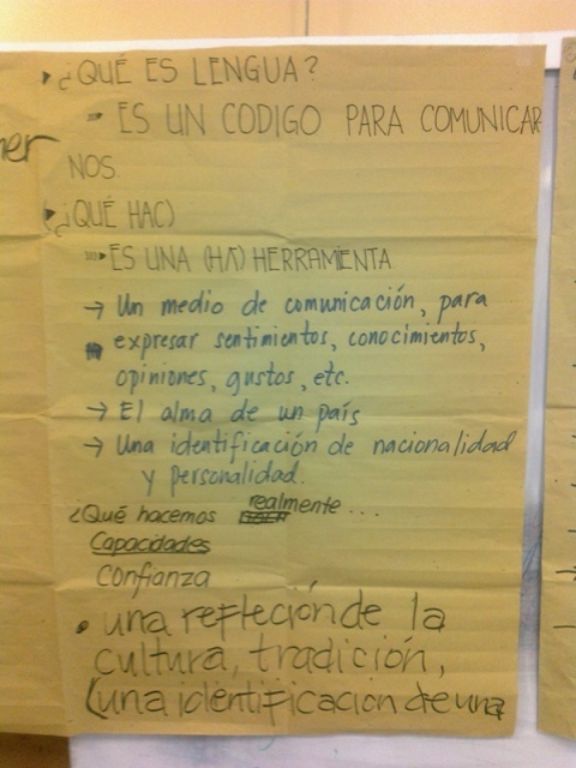 ¿QUÉ ES LENGUA?
ES UN CODIGO PARA COMUNICAR
NOS.
¿QUÉ HAC)
ES UNA (H/) HERRAMIENTA
→ Un medio de comunicación, para
expresar sentimientos, conocimientos,
opiniones, gustos, etc.
→ El alma de un país
→ Una identificación de nacionalidad
y personalidad.
¿Qué hacemos realmente...
Capacidades
Confianza
• una reflección de la
cultura, tradición,
(una identificacion de una